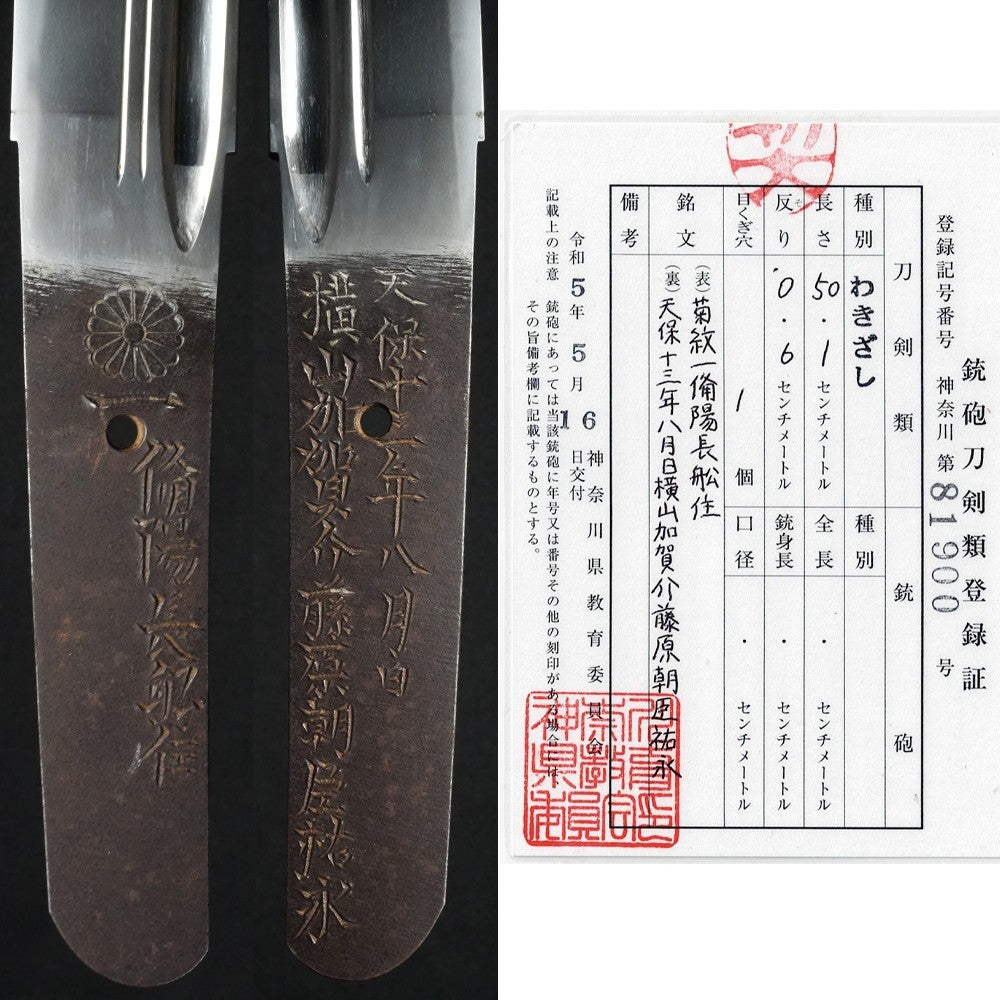 一備陽長船住
天保十三年八月日
横山加賀介藤原朝臣祐永
銃砲刀剣類登録証
登録記号番号 神奈川 第 81900 号
刀剣類 銃砲
種別 わきざし 種別
長さ 50.1 センチメートル 全長 ・ センチメートル
反り そ 0.6 センチメートル 銃身長 ・ センチメートル
目くぎ穴 1 個 口径 ・ センチメートル
銘文 (表) 菊紋一備陽長舩住
(裏) 天保十三年八月日横山加賀介藤原朝臣祐永
備考
令和 5 年 5 月 16 日交付
神奈川県教育委員会
記載上の注意 銃砲にあっては当該銃砲に年号又は番号その他の刻印がある場合には、
その旨備考欄に記載するものとする。